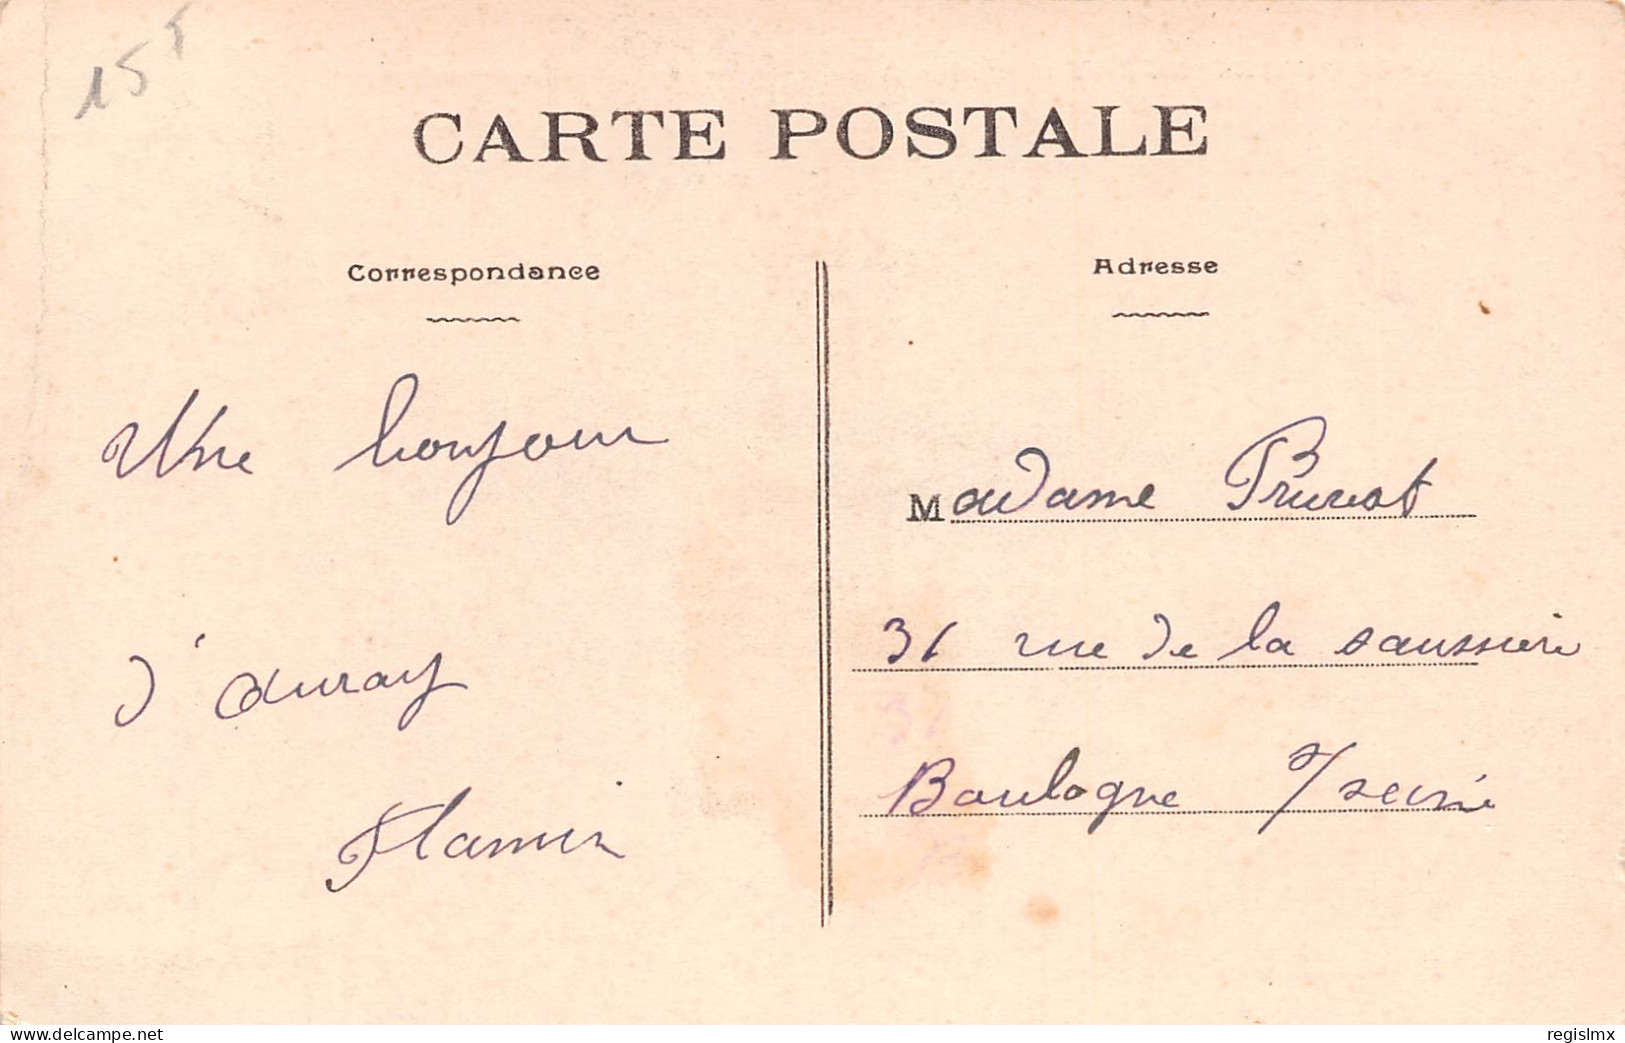 15 F
CARTE POSTALE
Correspondance
Une bonjour
d'auray
Flamin
Adresse
Madame Pruvost
31 rue de la saussiere
31
Boulogne s/ seine
www.delcampe.net
regislmx